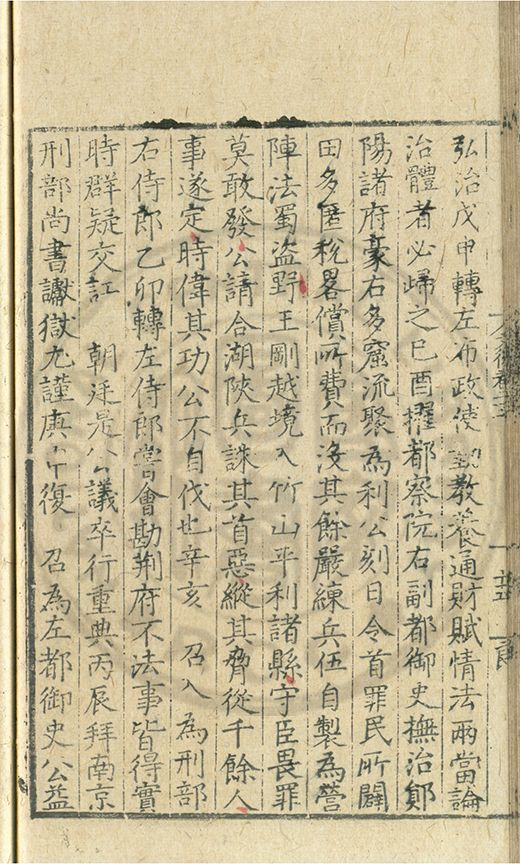 弘治戊甲轉左布政使敦教養通財賦情法兩當論
治體者必歸之巳酉擢都察院右副都御史撫治鄖
陽諸府豪右多窩流聚為利公刻日令首罪民所闢
田多匿稅畧償所費而沒其餘嚴練兵伍自製為營
陣法蜀盜野王剛越境入竹山平利諸縣守臣畏罪
莫敢發公請合湖陝兵誅其首惡縱其脅從千餘人
事遂定時偉其功公不自伐也辛亥 召入為刑部
右侍郎乙卯轉左侍郎嘗會勘荆府不法事皆得實
時群疑交訌 朝廷是公議卒行重典丙辰拜南京
刑部尚書讞獄尤謹庚午復 召為左都御史公益